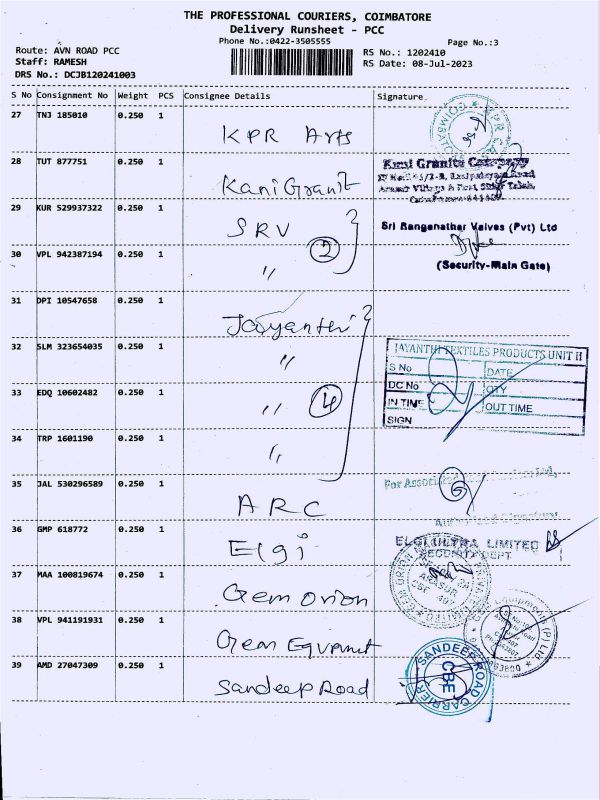 THE PROFESSIONAL COURIERS, COIMBATORE
Delivery Runsheet - PCC
Phone No.:0422-3505555
Page No.:3
Route: AVN ROAD PCC
RS No.: 1202410
Staff: RAMESH
RS Date: 08-Jul-2023
DRS No.: DCJB120241003
S No Consignment No Weight PCS Consignee Details Signature
27 TNJ 185010 0.250 1 KPR Arts
28 TUT 877751 0.250 1 Kani Granit
Kani Granite Company
29 KUR 529937322 0.250 1 SRV
Sri Ranganathar Valves (Pvt) Ltd
2
30 VPL 942387194 0.250 1 "
(Security-Main Gate)
31 DPI 10547658 0.250 1 Jayanthi
32 SLM 323654035 0.250 1 "
JAYANTHI TEXTILES PRODUCTS UNIT II
S No DATE
33 EDQ 10602482 0.250 1 " 4
DC No QTY
IN TIME OUT TIME
SIGN
34 TRP 1601190 0.250 1 "
35 JAL 530296589 0.250 1 ARC
For
36 GMP 618772 0.250 1 Elgi
ELGI ULTRA LIMITED
SECURITY DEPT.
37 MAA 100819674 0.250 1 Gem Orion
38 VPL 941191931 0.250 1 Gem Equpmet
39 AMD 27047309 0.250 1 Sandeep Road
SANDEEP ROAD CARRIER
CBE